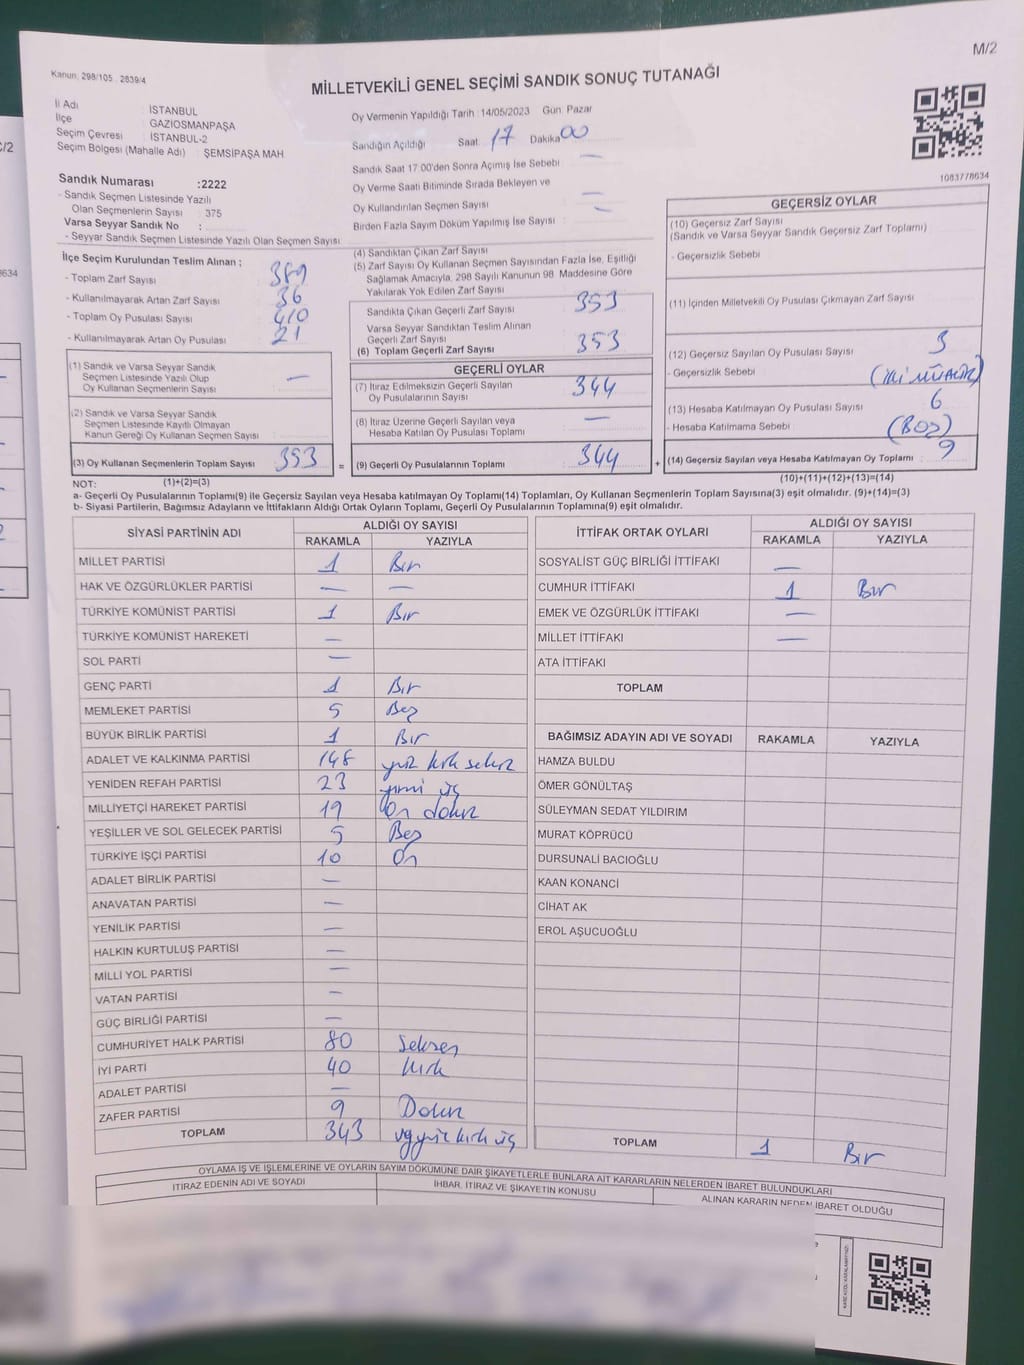 M/2
Kanun: 298/105 . 2839/4
MİLLETVEKİLİ GENEL SEÇİMİ SANDIK SONUÇ TUTANAĞI
İl Adı : İSTANBUL
İlçe : GAZİOSMANPAŞA
Seçim Çevresi : İSTANBUL-2
Seçim Bölgesi (Mahalle Adı) : ŞEMSİPAŞA MAH
Sandık Numarası :2222
- Sandık Seçmen Listesinde Yazılı
Olan Seçmenlerin Sayısı : 375
Varsa Seyyar Sandık No :
- Seyyar Sandık Seçmen Listesinde Yazılı Olan Seçmen Sayısı
Oy Vermenin Yapıldığı Tarih : 14/05/2023 Gün: Pazar
Sandığın Açıldığı Saat: 17 Dakika: 00
Sandık Saat 17:00'den Sonra Açılmış İse Sebebi —
Oy Verme Saati Bitiminde Sırada Bekleyen ve
Oy Kullandırılan Seçmen Sayısı —
Birden Fazla Sayım Döküm Yapılmış İse Sayısı —
1083778634
İlçe Seçim Kurulundan Teslim Alınan ;
- Toplam Zarf Sayısı : 389
- Kullanılmayarak Artan Zarf Sayısı : 36
- Toplam Oy Pusulası Sayısı : 410
- Kullanılmayarak Artan Oy Pusulası : 21
(1) Sandık ve Varsa Seyyar Sandık
Seçmen Listesinde Yazılı Olup
Oy Kullanan Seçmenlerin Sayısı —
(2) Sandık ve Varsa Seyyar Sandık
Seçmen Listesinde Kayıtlı Olmayan
Kanun Gereği Oy Kullanan Seçmen Sayısı :
(3) Oy Kullanan Seçmenlerin Toplam Sayısı : 353
(4) Sandıktan Çıkan Zarf Sayısı
(5) Zarf Sayısı Oy Kullanan Seçmen Sayısından Fazla İse, Eşitliği
Sağlamak Amacıyla, 298 Sayılı Kanunun 98. Maddesine Göre
Yakılarak Yok Edilen Zarf Sayısı
Sandıkta Çıkan Geçerli Zarf Sayısı 353
Varsa Seyyar Sandıktan Teslim Alınan
Geçerli Zarf Sayısı
(6) Toplam Geçerli Zarf Sayısı 353
GEÇERLİ OYLAR
(7) İtiraz Edilmeksizin Geçerli Sayılan
Oy Pusulalarının Sayısı 344
(8) İtiraz Üzerine Geçerli Sayılan veya
Hesaba Katılan Oy Pusulası Toplamı —
= (9) Geçerli Oy Pusulalarının Toplamı 344
GEÇERSİZ OYLAR
(10) Geçersiz Zarf Sayısı
(Sandık ve Varsa Seyyar Sandık Geçersiz Zarf Toplamı)
- Geçersizlik Sebebi
(11) İçinden Milletvekili Oy Pusulası Çıkmayan Zarf Sayısı
(12) Geçersiz Sayılan Oy Pusulası Sayısı 3
- Geçersizlik Sebebi :
(13) Hesaba Katılmayan Oy Pusulası Sayısı 6
- Hesaba Katılmama Sebebi : (BOŞ)
+ (14) Geçersiz Sayılan veya Hesaba Katılmayan Oy Toplamı : 9
NOT: (1)+(2)=(3)
(10)+(11)+(12)+(13)=(14)
a- Geçerli Oy Pusulalarının Toplamı(9) ile Geçersiz Sayılan veya Hesaba katılmayan Oy Toplamı(14) Toplamları, Oy Kullanan Seçmenlerin Toplam Sayısına(3) eşit olmalıdır. (9)+(14)=(3)
b- Siyasi Partilerin, Bağımsız Adayların ve İttifakların Aldığı Ortak Oyların Toplamı, Geçerli Oy Pusulalarının Toplamına(9) eşit olmalıdır.
SİYASİ PARTİNİN ADI ALDIĞI OY SAYISI
RAKAMLA YAZIYLA
MİLLET PARTİSİ 1 Bir
HAK VE ÖZGÜRLÜKLER PARTİSİ — —
TÜRKİYE KOMÜNİST PARTİSİ 1 Bir
TÜRKİYE KOMÜNİST HAREKETİ —
SOL PARTİ —
GENÇ PARTİ 1 Bir
MEMLEKET PARTİSİ 5 Beş
BÜYÜK BİRLİK PARTİSİ 1 Bir
ADALET VE KALKINMA PARTİSİ 148 yüz kırk sekiz
YENİDEN REFAH PARTİSİ 23 yirmi üç
MİLLİYETÇİ HAREKET PARTİSİ 19 On dokuz
YEŞİLLER VE SOL GELECEK PARTİSİ 5 Beş
TÜRKİYE İŞÇİ PARTİSİ 10 On
ADALET BİRLİK PARTİSİ —
ANAVATAN PARTİSİ —
YENİLİK PARTİSİ —
HALKIN KURTULUŞ PARTİSİ —
MİLLİ YOL PARTİSİ —
VATAN PARTİSİ —
GÜÇ BİRLİĞİ PARTİSİ —
CUMHURİYET HALK PARTİSİ 80 seksen
İYİ PARTİ 40 kırk
ADALET PARTİSİ —
ZAFER PARTİSİ 9 Dokuz
TOPLAM 343 üçyüz kırk üç
İTTİFAK ORTAK OYLARI ALDIĞI OY SAYISI
RAKAMLA YAZIYLA
SOSYALİST GÜÇ BİRLİĞİ İTTİFAKI —
CUMHUR İTTİFAKI 1 Bir
EMEK VE ÖZGÜRLÜK İTTİFAKI —
MİLLET İTTİFAKI —
ATA İTTİFAKI
TOPLAM
BAĞIMSIZ ADAYIN ADI VE SOYADI RAKAMLA YAZIYLA
HAMZA BULDU
ÖMER GÖNÜLTAŞ
SÜLEYMAN SEDAT YILDIRIM
MURAT KÖPRÜCÜ
DURSUNALİ BACIOĞLU
KAAN KONANCİ
CİHAT AK
EROL AŞUCUOĞLU
TOPLAM 1 Bir
OYLAMA İŞ VE İŞLEMLERİNE VE OYLARIN SAYIM DÖKÜMÜNE DAİR ŞİKAYETLERLE BUNLARA AİT KARARLARIN NELERDEN İBARET BULUNDUKLARI
İTİRAZ EDENİN ADI VE SOYADI İHBAR, İTİRAZ VE ŞİKAYETİN KONUSU ALINAN KARARIN NEDEN İBARET OLDUĞU